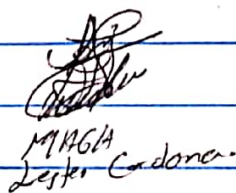 MAGIA
Lester Cardona.